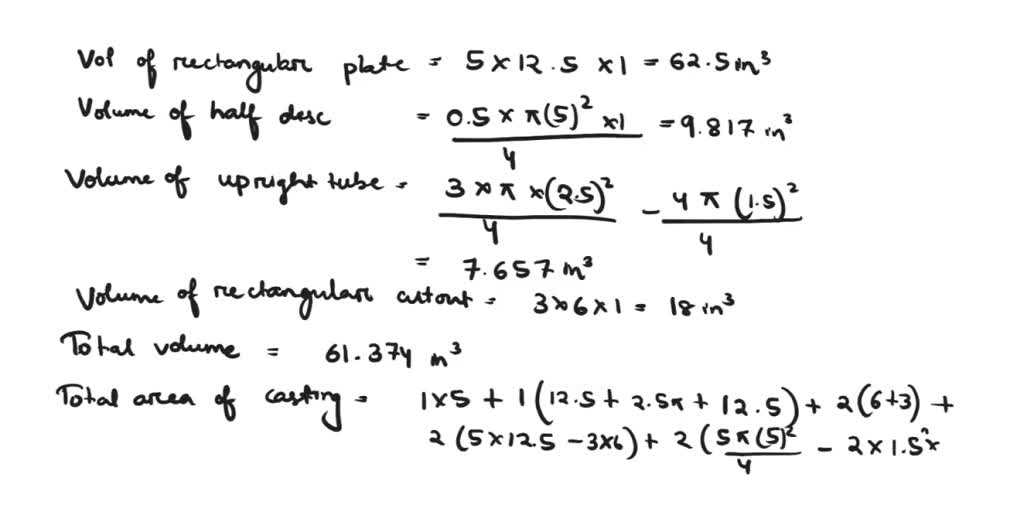 Vol of rectangular plate = 5 × 12.5 × 1 = 62.5 in³
Volume of half desc = 0.5 × π(5)² × 1 / 4 = 9.817 in³
Volume of upright tube = 3 × π × (2.5)² / 4 - 4π (1.5)² / 4
= 7.657 in³
Volume of rectangular cutout = 3 × 6 × 1 = 18 in³
Total volume = 61.374 in³
Total area of casting = 1×5 + 1(12.5 + 2.5π + 12.5) + 2(6+3) +
2(5×12.5 - 3×6) + 2(5π(5)² / 4 - 2×1.5²×